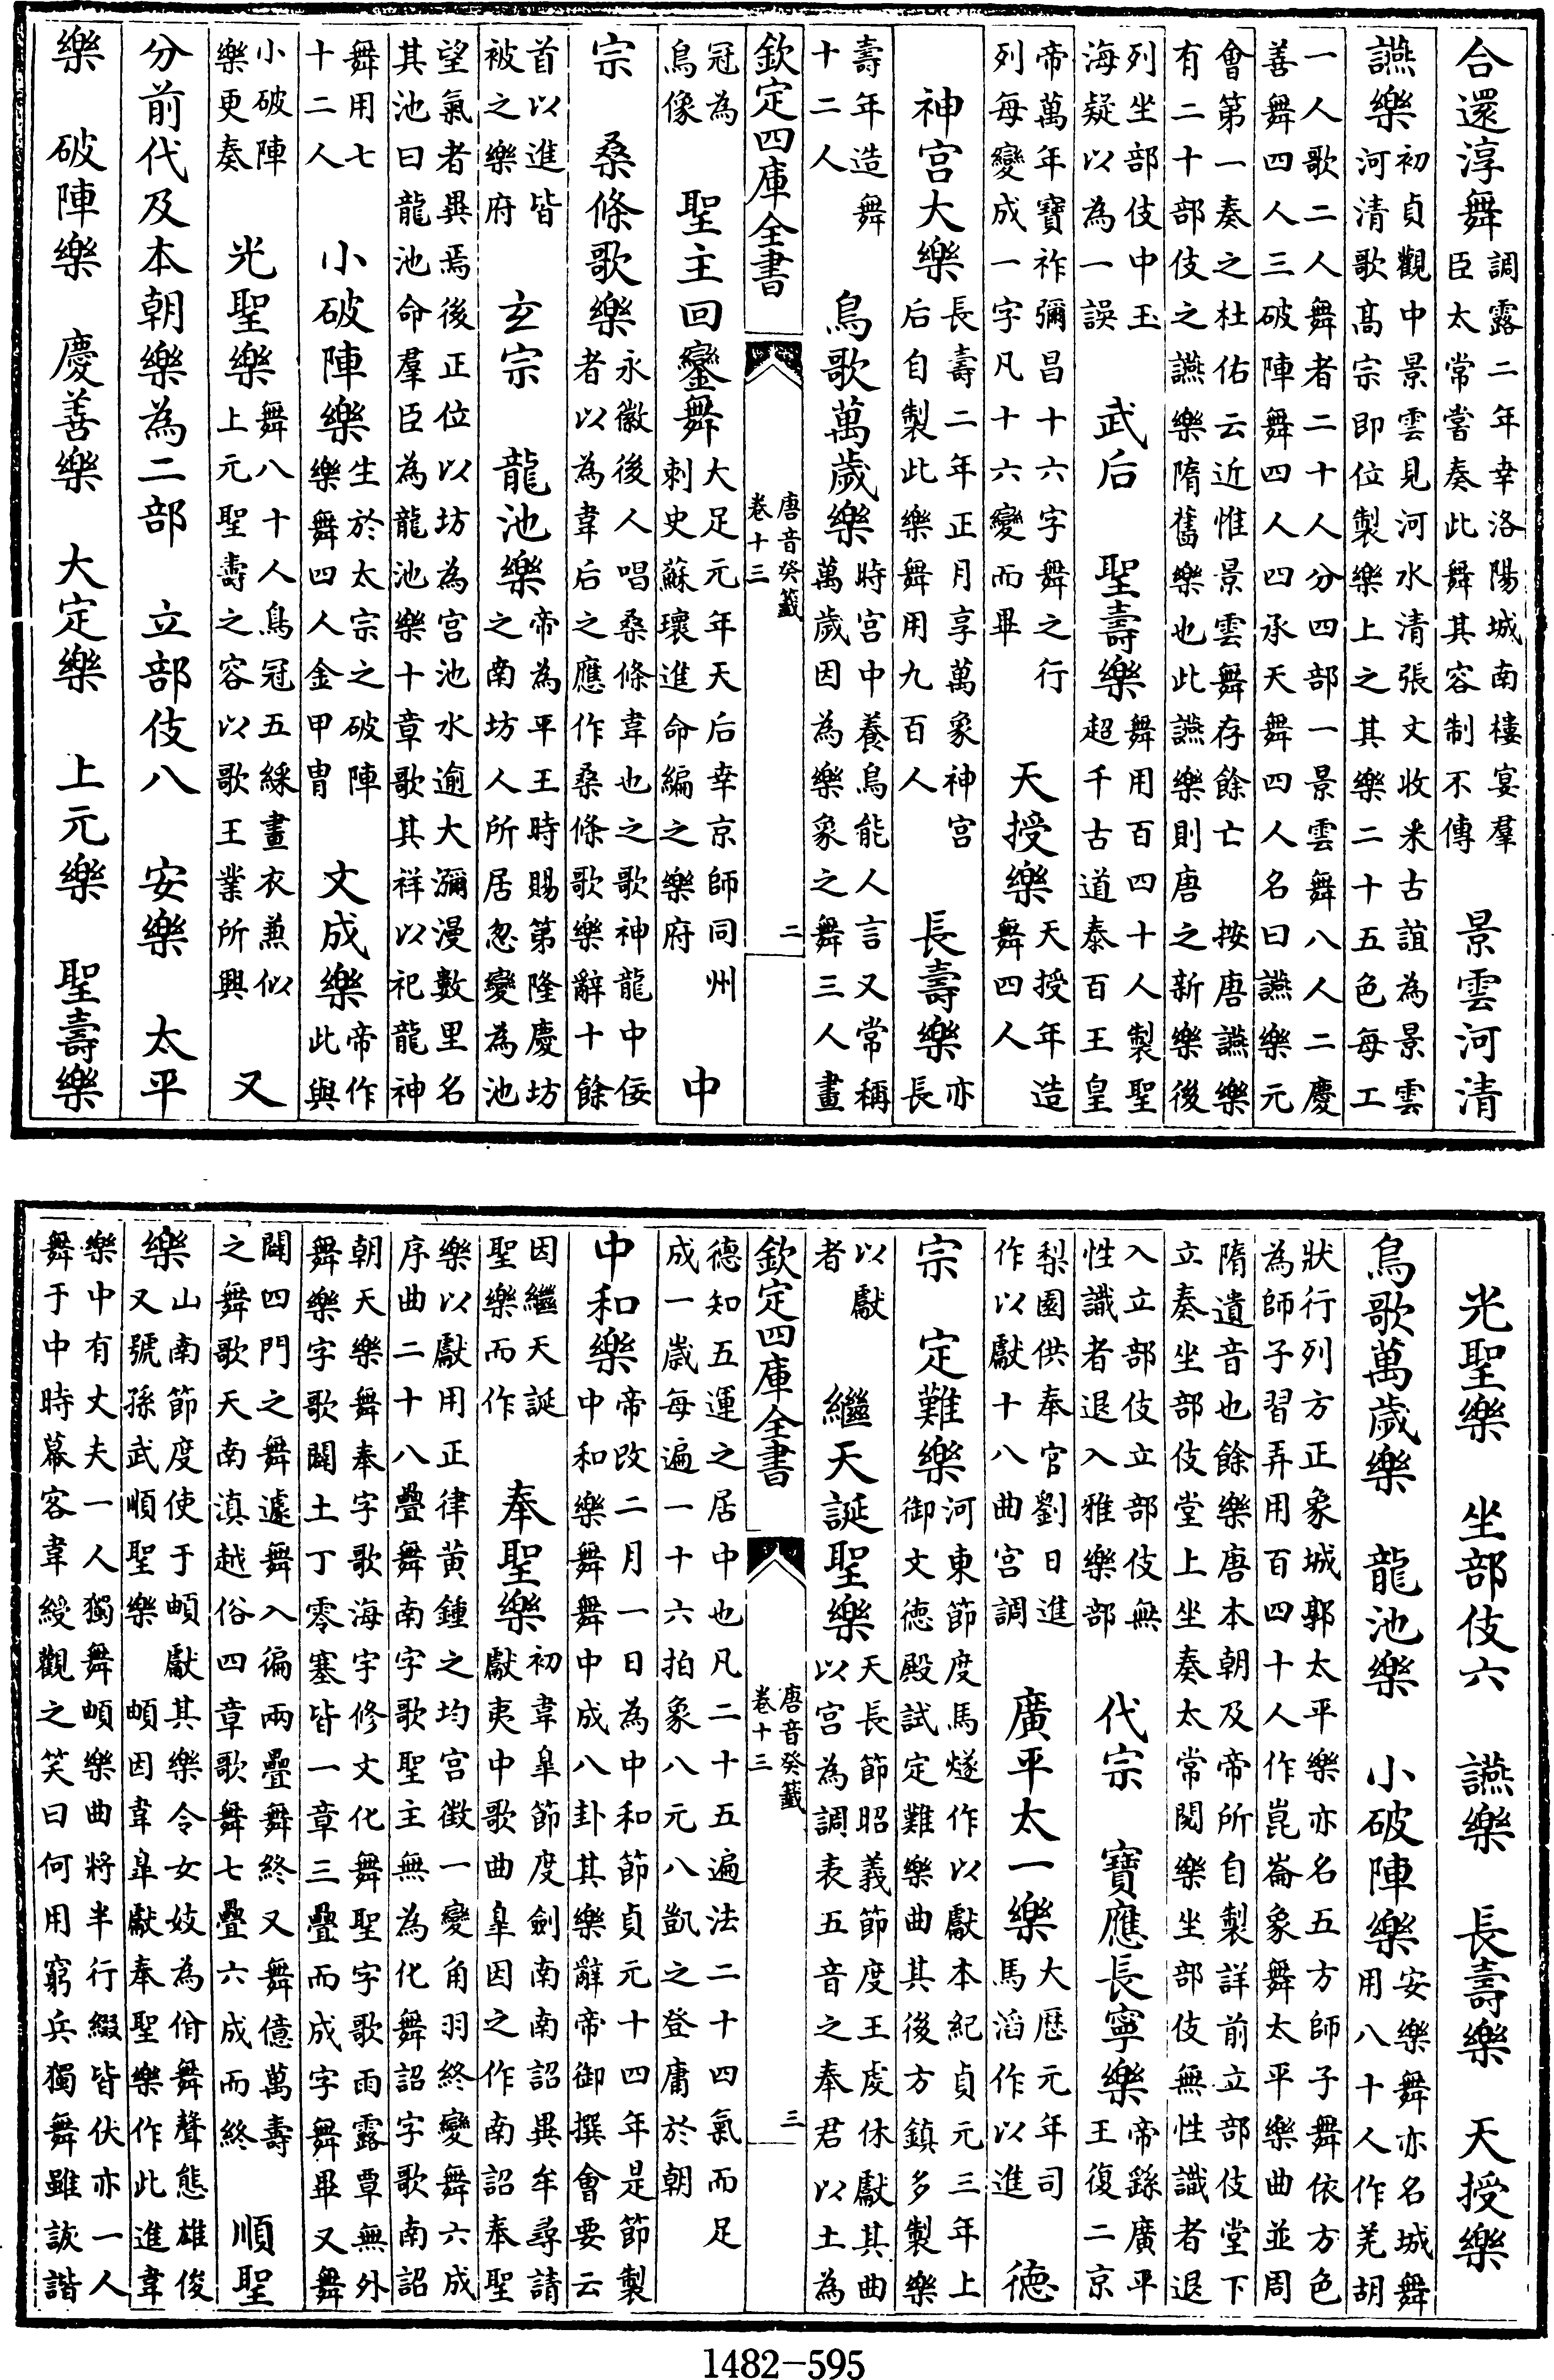 合還淳舞調露二年幸洛陽城南樓宴羣臣太常嘗奏此舞其容制不傳 景雲河清
讌樂初貞觀中景雲見河水清張文收采古誼為景雲河清歌高宗即位製樂上之其樂二十五色每工
一人歌二人舞者二十人分四部一景雲舞八人二慶善舞四人三破陣舞四人四承天舞四人名曰讌樂元
會第一奏之杜佑云近惟景雲舞存餘亡 按唐讌樂有二十部伎之讌樂隋舊樂也此讌樂則唐之新樂後
列坐部伎中玉海疑以為一誤 武后 聖壽樂舞用百四十人製聖超千古道泰百王皇
帝萬年寶祚彌昌十六字舞之行列每變成一字凡十六變而畢 天授樂天授年造舞四人
神宮大樂長壽二年正月享萬象神宮后自製此樂舞用九百人 長壽樂亦長
壽年造舞十二人 鳥歌萬歲樂時宮中養鳥能人言又常稱萬歲因為樂象之舞三人畫
欽定四庫全書 唐音癸籤 卷十三 二
冠為鳥像 聖主回鑾舞大足元年天后幸京師同州刺史蘇瓌進命編之樂府 中
宗 桑條歌樂永徽後人唱桑條韋也之歌神龍中佞者以為韋后之應作桑條歌樂辭十餘
首以進皆被之樂府 玄宗 龍池樂帝為平王時賜第隆慶坊之南坊人所居忽變為池
望氣者異焉後正位以坊為宮池水逾大瀰漫數里名其池曰龍池命羣臣為龍池樂十章歌其祥以祀龍神
舞用七十二人 小破陣樂生於太宗之破陣樂舞四人金甲胄 文成樂帝作此與
小破陣樂更奏 光聖樂舞八十人鳥冠五綵畫衣兼似上元聖壽之容以歌王業所興 又
分前代及本朝樂為二部 立部伎八 安樂 太平
樂 破陣樂 慶善樂 大定樂 上元樂 聖壽樂
光聖樂 坐部伎六 讌樂 長壽樂 天授樂
鳥歌萬歲樂 龍池樂 小破陣樂安樂舞亦名城舞用八十人作羌胡
狀行列方正象城郭太平樂亦名五方師子舞依方色為師子習弄用百四十人作崑崙象舞太平樂曲並周
隋遺音也餘樂唐本朝及帝所自製詳前立部伎堂下立奏坐部伎堂上坐奏太常閱樂坐部伎無性識者退
入立部伎立部伎無性識者退入雅樂部 代宗 寶應長寧樂帝繇廣平王復二京
梨園供奉官劉日進作以獻十八曲宮調 廣平太一樂大厯元年司馬滔作以進 德
宗 定難樂河東節度馬燧作以獻本紀貞元三年上御文德殿試定難樂曲其後方鎮多製樂
以獻者 繼天誕聖樂天長節昭義節度王虔休獻其曲以宮為調表五音之奉君以土為
欽定四庫全書 唐音癸籤 卷十三 三
德知五運之居中也凡二十五遍法二十四氣而足成一歲每遍一十六拍象八元八凱之登庸於朝
中和樂帝改二月一日為中和節貞元十四年是節製中和樂舞舞中成八卦其樂辭帝御撰會要云
因繼天誕聖樂而作 奉聖樂初韋臯節度劍南南詔異牟尋請獻夷中歌曲臯因之作南詔奉聖
樂以獻用正律黃鍾之均宮徵一變角羽終變舞六成序曲二十八疊舞南字歌聖主無為化舞詔字歌南詔
朝天樂舞奉字歌海宇修文化舞聖字歌雨露覃無外舞樂字歌闢土丁零塞皆一章三疊而成字舞畢又舞
闢四門之舞遽舞入徧兩疊舞終又舞億萬壽之舞歌天南滇越俗四章歌舞七疊六成而終 順聖
樂山南節度使于頔獻其樂令女妓為佾舞聲態雄俊又號孫武順聖樂 頔因韋臯獻奉聖樂作此進韋
樂中有丈夫一人獨舞頔樂曲將半行綴皆伏亦一人舞于中時幕客韋綬觀之笑曰何用窮兵獨舞雖詼諧
1482-595